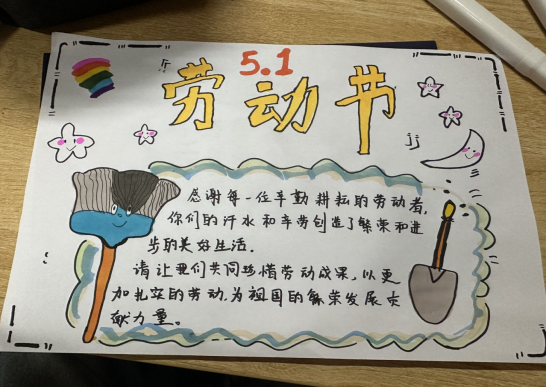 5.1
劳动节
感谢每一位辛勤耕耘的劳动者,
你们的汗水和辛劳创造了繁荣和进
步的美好生活.
请让我们共同珍惜劳动成果,以更
加扎实的劳动,为祖国的繁荣发展贡
献力量。